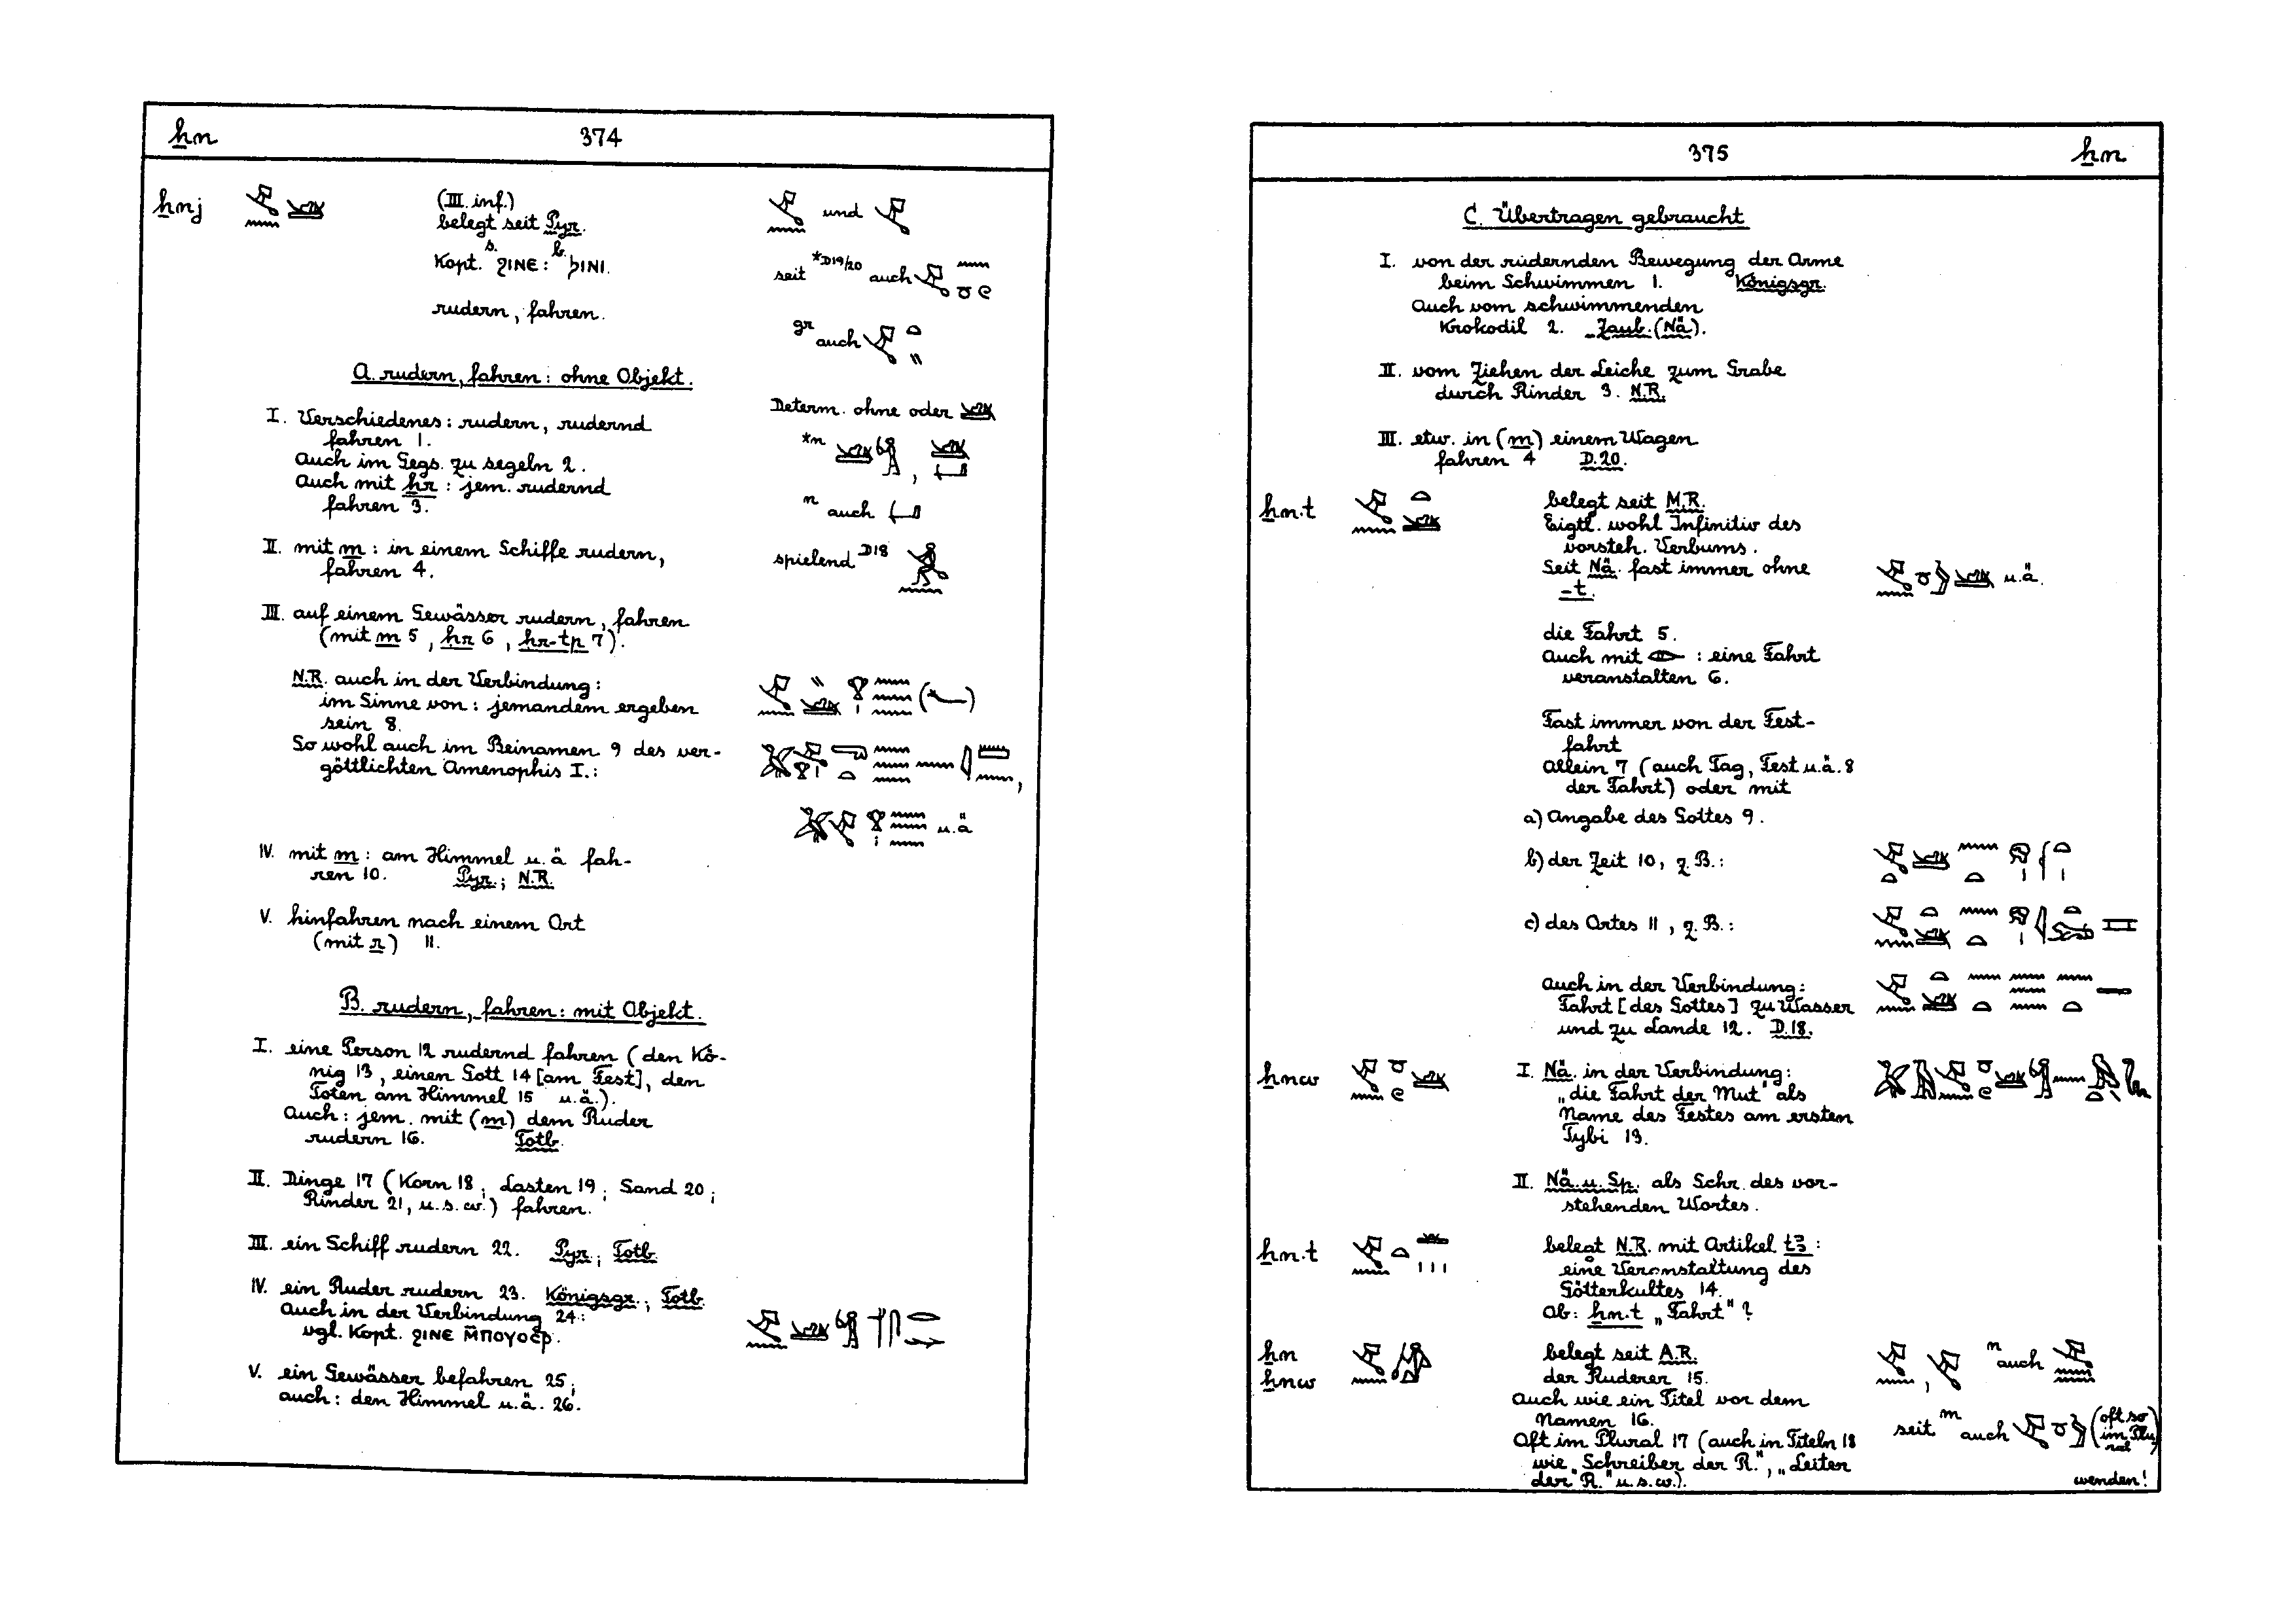 ẖn 374
ẖnj
(III. inf.)
belegt seit Pyr.
s. b.
Kopt. ϩⲓⲛⲉ: ϧⲓⲛⲓ.
rudern, fahren.
und
seit *D19/20 auch
gr auch
Determ. ohne oder
*n
n auch
spielend D18
A. rudern, fahren: ohne Objekt.
I. Verschiedenes: rudern, rudernd
fahren 1.
Auch im Gegs. zu segeln 2.
Auch mit ẖr: jem. rudernd
fahren 3.
II. mit m: in einem Schiffe rudern,
fahren 4.
III. auf einem Gewässer rudern, fahren
(mit m 5, ḥr 6, ḥr-tp 7).
N.R. auch in der Verbindung:
im Sinne von: jemandem ergeben
sein 8.
So wohl auch im Beinamen 9 des ver-
göttlichten Amenophis I.:
u.ä
IV. mit m: am Himmel u.ä fah-
ren 10. Pyr.; N.R.
V. hinfahren nach einem Ort
(mit r) 11.
B. rudern, fahren: mit Objekt.
I. eine Person 12 rudernd fahren (den Kö-
nig 13, einen Gott 14 [am Fest], den
Toten am Himmel 15 u.ä.).
Auch: jem. mit (m) dem Ruder
rudern 16. Totb.
II. Dinge 17 (Korn 18; Lasten 19; Sand 20;
Rinder 21, u.s.w.) fahren.
III. ein Schiff rudern 22. Pyr.; Totb.
IV. ein Ruder rudern 23. Königsgr.; Totb.
Auch in der Verbindung 24:
vgl. Kopt. ϩⲓⲛⲉ ⲙ̄ⲡⲟⲩⲟⲥⲣ.
V. ein Gewässer befahren 25;
auch: den Himmel u.ä. 26.
375 ẖn
C. Übertragen gebraucht
I. von der rudernden Bewegung der Arme
beim Schwimmen 1. Königsgr.
Auch vom schwimmenden
Krokodil 2. Zaub. (Nä).
II. vom Ziehen der Leiche zum Grabe
durch Rinder 3. N.R.
III. etw. in (m) einem Wagen
fahren 4 D.20.
ẖn.t
belegt seit M.R.
Eigtl. wohl Infinitiv des
vorsteh. Verbums.
Seit Nä. fast immer ohne
-t.
u.ä.
die Fahrt 5.
Auch mit : eine Fahrt
veranstalten 6.
Fast immer von der Fest-
fahrt
Allein 7 (auch Tag, Fest u.ä. 8
der Fahrt) oder mit
a) Angabe des Gottes 9.
b) der Zeit 10, z.B.:
c) des Ortes 11, z.B.:
Auch in der Verbindung:
Fahrt [des Gottes] zu Wasser
und zu Lande 12. D.18.
ẖnw
I. Nä. in der Verbindung:
„die Fahrt der Mut" als
Name des Festes am ersten
Tybi 13.
II. Nä. u. Sp. als Schr. des vor-
stehenden Wortes.
ẖn.t
belegt N.R. mit Artikel tꜣ:
eine Veranstaltung des
Götterkultes 14.
Ob: ẖn.t „Fahrt"?
ẖn
ẖnw
belegt seit A.R.
der Ruderer 15.
Auch wie ein Titel vor dem
Namen 16.
Oft im Plural 17 (auch in Titeln 18
wie „Schreiber der R.", „Leiter
der R." u.s.w.).
, n auch
seit m auch (oft so
im Plu
ral)
wenden!